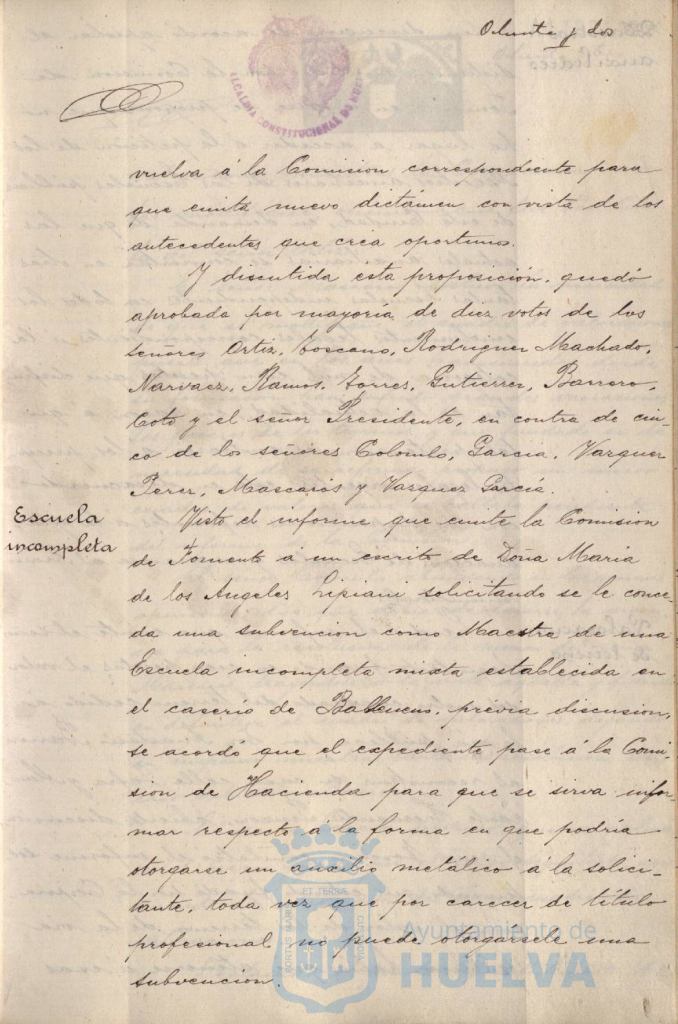 Ochenta y dos
ALCALDIA CONSTITUCIONAL DE HUELVA
vuelva á la Comision correspondiente para
que emita nuevo dictámen con vista de los
antecedentes que crea oportunos.
Y discutida esta proposición, quedó
aprobada por mayoría de diez votos de los
señores Ortiz, Toscano, Rodriguez Machado,
Narvaez, Ramos, Torres, Gutierrez, Barrero,
Coto y el señor Presidente, en contra de cin-
co de los señores Colombo, Garcia, Vazquez
Perez, Mascarós y Vazquez García.
Escuela
incompleta
Visto el informe que emite la Comision
de Fomento á un escrito de Doña Maria
de los Angeles Lipiani solicitando se le conce-
da una subvencion como Maestra de una
Escuela incompleta mixta establecida en
el caserío de previa discusion,
se acordó que el expediente pase á la Comi-
sion de Hacienda para que se sirva infor-
mar respecto á la forma en que podría
otorgarse un auxilio metálico á la solici-
tante, toda vez que por carecer de título
profesional no puede otorgarsele una
subvencion.
PORTUS MARIS ET TERRÆ CUSTODIA
Ayuntamiento de
HUELVA